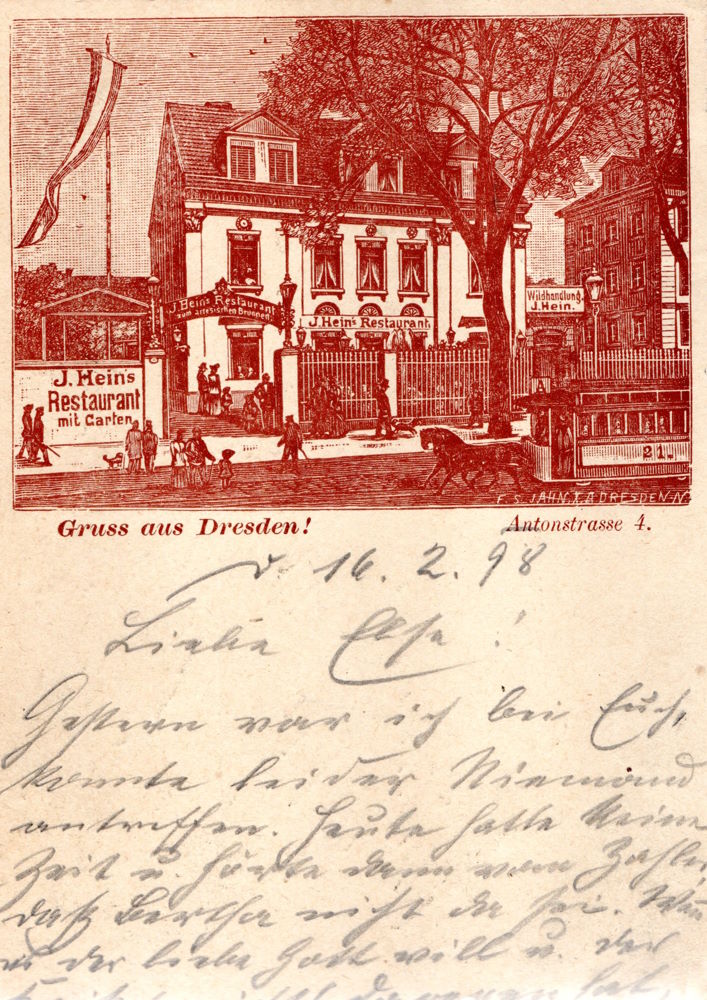 J. Hein's Restaurant
zum artesischen Brunnen
J. Hein's Restaurant
Wildhandlung.
J. Hein.
J. Hein's
Restaurant
mit Garten
21.
F. S. JAHN X.A DRESDEN-N.
Gruss aus Dresden!
Antonstrasse 4.
d. 16. 2. 98
Liebe Else!
Gestern war ich bei Euch,
konnte leider Niemand
antreffen. Heute hatte keine
Zeit u. hörte dann vom
daß Bertha nicht da sei. Wenn
es der liebe Gott will u. der